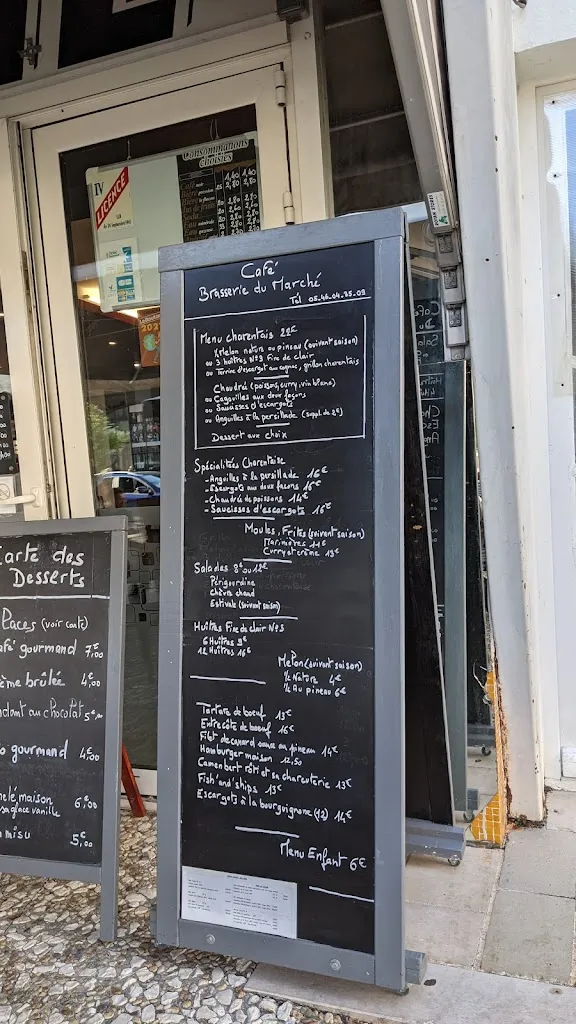 Consommations
choisies
IV
LICENCE
Café
Brasserie du Marché
Menu charentais 22€
Melon nature ou pineau (suivant saison)
ou 3 huîtres N°3 Fine de clair
ou Terrine d'escargot au cognac, grillon charentais
Chaudrée (poissons, curry, vin blanc)
ou Cagouilles aux deux façons
ou Saucisses d'escargots
ou Anguilles à la persillade (suppl. de 2€)
Dessert aux choix
Spécialitées Charentaise
- Anguilles à la persillade 16€
- Escargots aux deux façons 15€
- Chaudrée de poissons 14€
- Saucisses d'escargots 15€
Moules, Frites (suivant saison)
Marinières 11€
Curry et crème 13€
Salades 9€ ou 12€
Périgourdine
Chèvre chaud
Estivale (suivant saison)
Huîtres Fine de clair N°3
6 Huîtres 9€
12 Huîtres 16€
Melon (suivant saison)
½ Nature 4€
½ Au pineau 6€
Tartare de boeuf 13€
Entrecôte de boeuf 16€
Filet de canard sauce au pineau 14€
Hamburger maison 12,50
Camenbert rôti et sa charcuterie 13€
Fish'and'ships 13€
Escargots à la bourguignone (12) 14€
Menu Enfant 6€
Carte des
Desserts
Places (voir carte)
afé gourmand 7,00
ème brûlée 4,00
ndant au chocolat
o gourmand
melé maison 6,00
sa glace vanille
misu 5,00